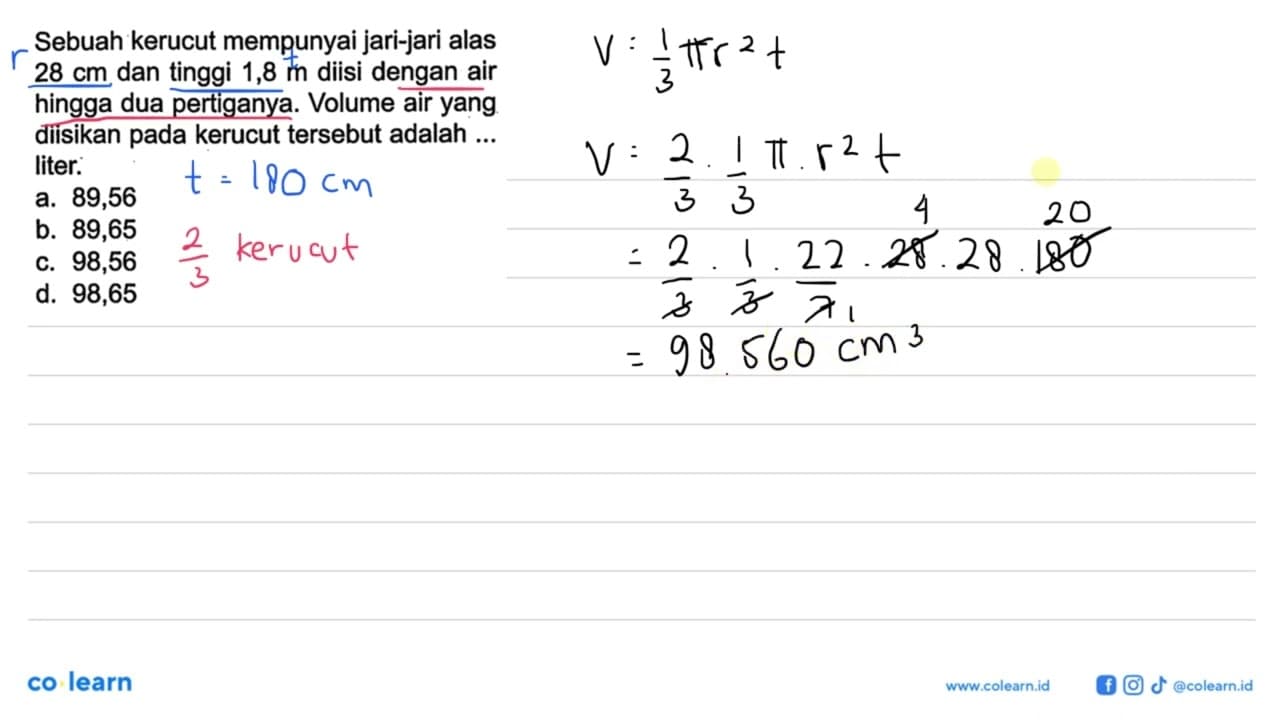 r Sebuah kerucut mempunyai jari-jari alas
t
28 cm dan tinggi 1,8 m diisi dengan air
hingga dua pertiganya. Volume air yang
diisikan pada kerucut tersebut adalah ...
liter.
t = 180 cm
a. 89,56
b. 89,65
c. 98,56
d. 98,65
2/3 kerucut
V = 1/3 πr² t
V = 2/3 . 1/3 π . r² t
4 20
= 2/3 . 1/3 . 22/7 . 28 . 28 . 180
1
= 98.560 cm³
co learn
www.colearn.id
@colearn.id